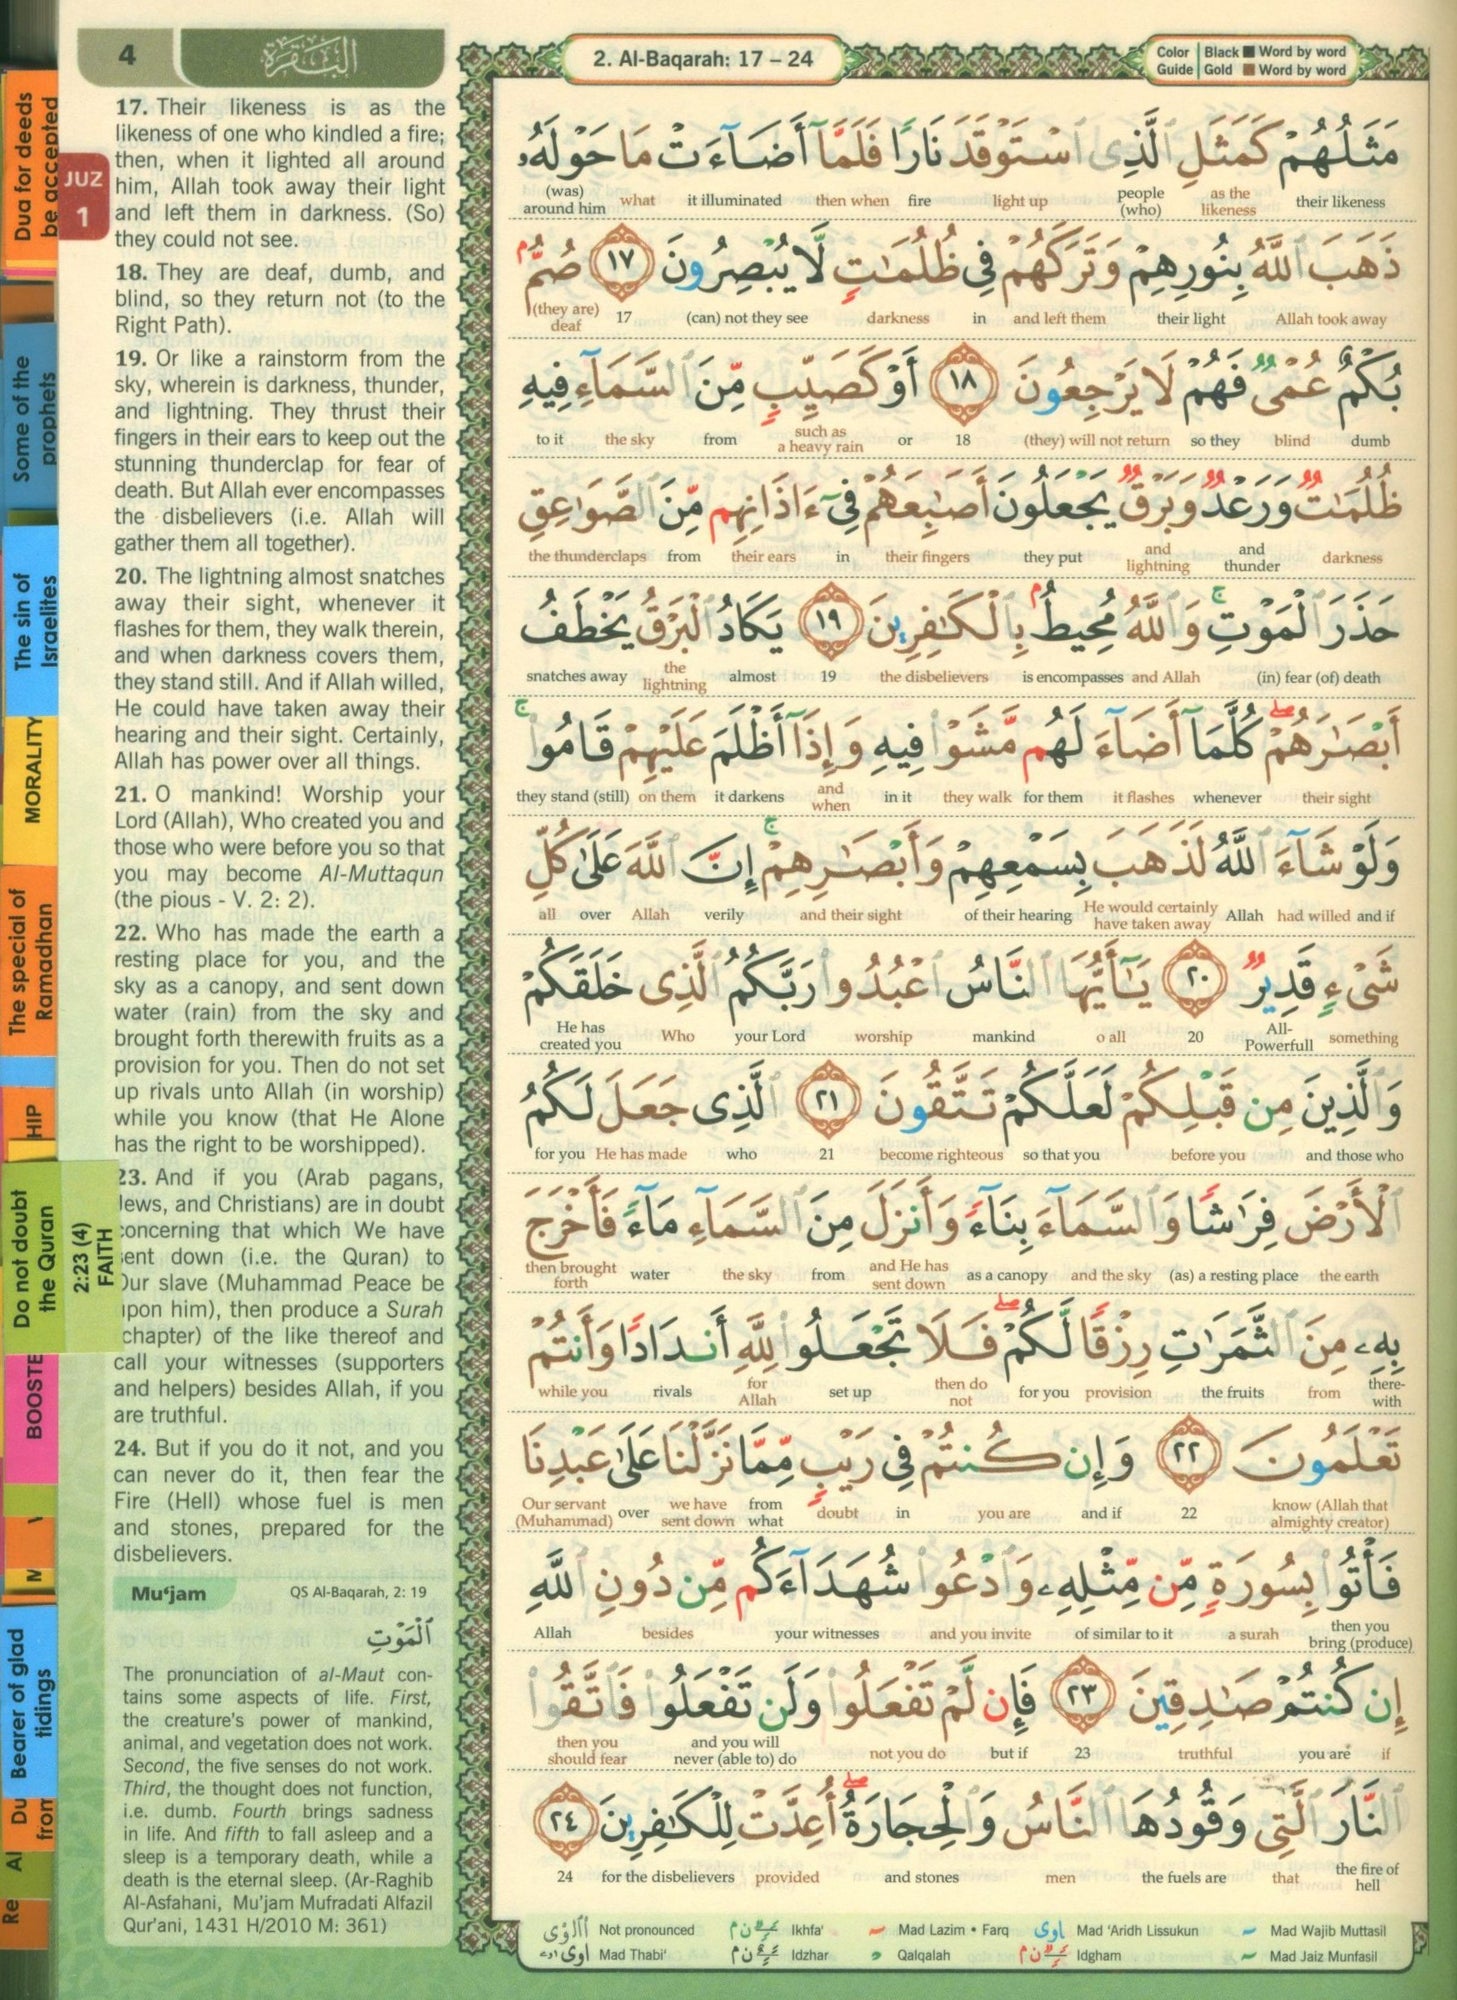 4
البقرة
2. Al-Baqarah: 17 – 24
Color Guide
Black Word by word
Gold Word by word
JUZ
1
Dua for deeds
be accepted
Some of the
prophets
The sin of
Israelites
MORALITY
The special of
Ramadhan
HIP
Do not doubt
the Quran
2:23 (4)
FAITH
BOOSTE
Bearer of glad
tidings
Du
from
Re
17. Their likeness is as the
likeness of one who kindled a fire;
then, when it lighted all around
him, Allah took away their light
and left them in darkness. (So)
they could not see.
18. They are deaf, dumb, and
blind, so they return not (to the
Right Path).
19. Or like a rainstorm from the
sky, wherein is darkness, thunder,
and lightning. They thrust their
fingers in their ears to keep out the
stunning thunderclap for fear of
death. But Allah ever encompasses
the disbelievers (i.e. Allah will
gather them all together).
20. The lightning almost snatches
away their sight, whenever it
flashes for them, they walk therein,
and when darkness covers them,
they stand still. And if Allah willed,
He could have taken away their
hearing and their sight. Certainly,
Allah has power over all things.
21. O mankind! Worship your
Lord (Allah), Who created you and
those who were before you so that
you may become Al-Muttaqun
(the pious - V. 2: 2).
22. Who has made the earth a
resting place for you, and the
sky as a canopy, and sent down
water (rain) from the sky and
brought forth therewith fruits as a
provision for you. Then do not set
up rivals unto Allah (in worship)
while you know (that He Alone
has the right to be worshipped).
23. And if you (Arab pagans,
Jews, and Christians) are in doubt
concerning that which We have
sent down (i.e. the Quran) to
Our slave (Muhammad Peace be
upon him), then produce a Surah
chapter) of the like thereof and
call your witnesses (supporters
and helpers) besides Allah, if you
are truthful.
24. But if you do it not, and you
can never do it, then fear the
Fire (Hell) whose fuel is men
and stones, prepared for the
disbelievers.
Mu‘jam QS Al-Baqarah, 2: 19
ٱلْمَوْتِ
The pronunciation of al-Maut con-
tains some aspects of life. First,
the creature's power of mankind,
animal, and vegetation does not work.
Second, the five senses do not work.
Third, the thought does not function,
i.e. dumb. Fourth brings sadness
in life. And fifth to fall asleep and a
sleep is a temporary death, while a
death is the eternal sleep. (Ar-Raghib
Al-Asfahani, Mu’jam Mufradati Alfazil
Qur’ani, 1431 H/2010 M: 361)
مَثَلُهُمْ كَمَثَلِ ٱلَّذِى ٱسْتَوْقَدَ نَارًا فَلَمَّآ أَضَآءَتْ مَا حَوْلَهُۥ
(was) around him what it illuminated then when fire light up people (who) as the likeness their likeness
ذَهَبَ ٱللَّهُ بِنُورِهِمْ وَتَرَكَهُمْ فِى ظُلُمَـٰتٍ لَّا يُبْصِرُونَ ١٧ صُمٌّۢ
(they are) deaf 17 (can) not they see darkness in and left them their light Allah took away
بُكْمٌ عُمْىٌ فَهُمْ لَا يَرْجِعُونَ ١٨ أَوْ كَصَيِّبٍ مِّنَ ٱلسَّمَآءِ فِيهِ
to it the sky from such as a heavy rain or 18 (they) will not return so they blind dumb
ظُلُمَـٰتٌ وَرَعْدٌ وَبَرْقٌ يَجْعَلُونَ أَصَـٰبِعَهُمْ فِىٓ ءَاذَانِهِم مِّنَ ٱلصَّوَٰعِقِ
the thunderclaps from their ears in their fingers they put and lightning and thunder darkness
حَذَرَ ٱلْمَوْتِ ۚ وَٱللَّهُ مُحِيطٌۢ بِٱلْكَـٰفِرِينَ ١٩ يَكَادُ ٱلْبَرْقُ يَخْطَفُ
snatches away the lightning almost 19 the disbelievers is encompasses and Allah (in) fear (of) death
أَبْصَـٰرَهُمْ ۖ كُلَّمَآ أَضَآءَ لَهُم مَّشَوْا۟ فِيهِ وَإِذَآ أَظْلَمَ عَلَيْهِمْ قَامُوا۟ ۚ
they stand (still) on them it darkens and when in it they walk for them it flashes whenever their sight
وَلَوْ شَآءَ ٱللَّهُ لَذَهَبَ بِسَمْعِهِمْ وَأَبْصَـٰرِهِمْ ۚ إِنَّ ٱللَّهَ عَلَىٰ كُلِّ
all over Allah verily and their sight of their hearing He would certainly have taken away Allah had willed and if
شَىْءٍ قَدِيرٌ ٢٠ يَـٰٓأَيُّهَا ٱلنَّاسُ ٱعْبُدُوا۟ رَبَّكُمُ ٱلَّذِى خَلَقَكُمْ
He has created you Who your Lord worship mankind o all 20 All-Powerfull something
وَٱلَّذِينَ مِن قَبْلِكُمْ لَعَلَّكُمْ تَتَّقُونَ ٢١ ٱلَّذِى جَعَلَ لَكُمُ
for you He has made who 21 become righteous so that you before you and those who
ٱلْأَرْضَ فِرَٰشًا وَٱلسَّمَآءَ بِنَآءً وَأَنزَلَ مِنَ ٱلسَّمَآءِ مَآءً فَأَخْرَجَ
then brought forth water the sky from and He has sent down as a canopy and the sky (as) a resting place the earth
بِهِۦ مِنَ ٱلثَّمَرَٰتِ رِزْقًا لَّكُمْ ۖ فَلَا تَجْعَلُوا۟ لِلَّهِ أَندَادًا وَأَنتُمْ
while you rivals for Allah set up then do not for you provision the fruits from there-with
تَعْلَمُونَ ٢٢ وَإِن كُنتُمْ فِى رَيْبٍ مِّمَّا نَزَّلْنَا عَلَىٰ عَبْدِنَا
Our servant (Muhammad) over we have sent down from what doubt in you are and if 22 know (Allah that almighty creator)
فَأْتُوا۟ بِسُورَةٍ مِّن مِّثْلِهِۦ وَٱدْعُوا۟ شُهَدَآءَكُم مِّن دُونِ ٱللَّهِ
Allah besides your witnesses and you invite of similar to it a surah then you bring (produce)
إِن كُنتُمْ صَـٰدِقِينَ ٢٣ فَإِن لَّمْ تَفْعَلُوا۟ وَلَن تَفْعَلُوا۟ فَٱتَّقُوا۟
then you should fear and you will never (able to) do not you do but if 23 truthful you are if
ٱلنَّارَ ٱلَّتِى وَقُودُهَا ٱلنَّاسُ وَٱلْحِجَارَةُ ۖ أُعِدَّتْ لِلْكَـٰفِرِينَ ٢٤
24 for the disbelievers provided and stones men the fuels are that the fire of hell
Not pronounced Ikhfa' Mad Lazim • Farq Mad 'Aridh Lissukun Mad Wajib Muttasil
Mad Thabi' Idzhar Qalqalah Idgham Mad Jaiz Munfasil